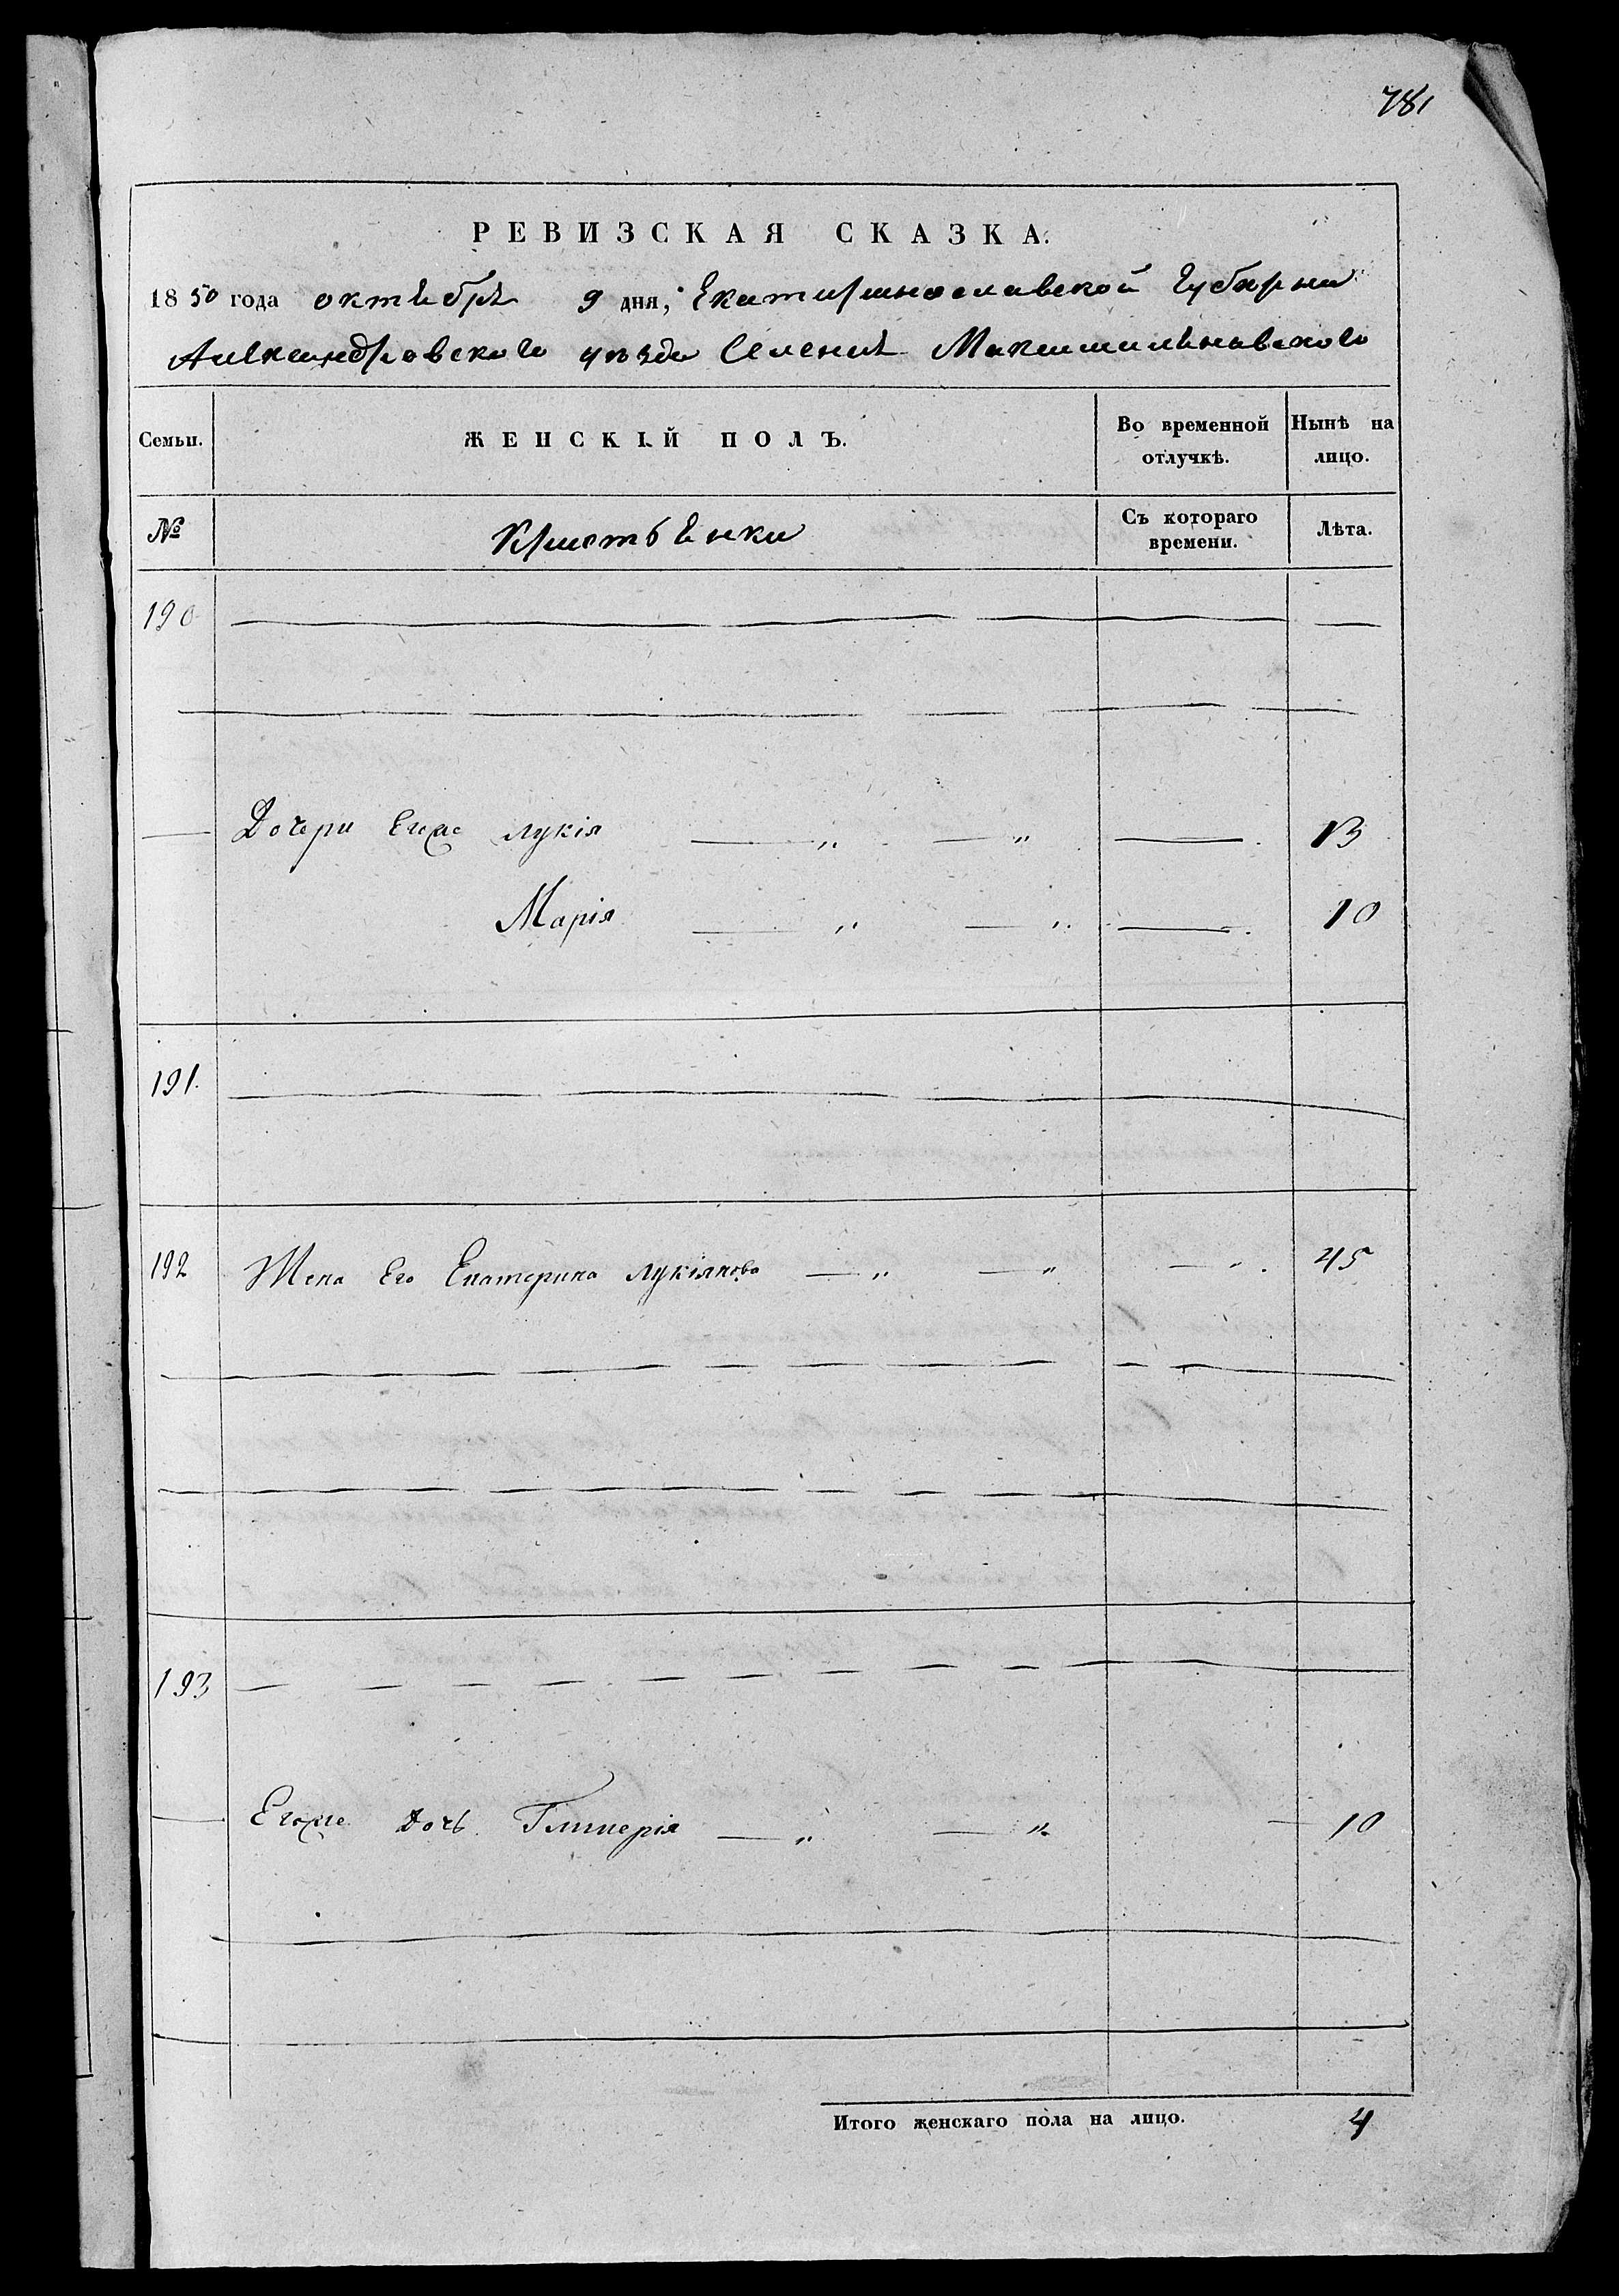 781
РЕВИЗСКАЯ СКАЗКА.
1850 года октября 9 дня, Екатеринославской Губернии
Александровского уезда Селения Максимиляновского
Семьи. ЖЕНСКІЙ ПОЛЪ. Во временной отлучкѣ. Нынѣ на лицо.
№ Крестьянки Съ котораго времени. Лѣта.
190
Дочери Егоже Лукія — „ — „ — 13
Марія — „ — „ — 10
191.
192 Жена Его Екатерина Лукіянова — „ — „ — „ 45
193
Егоже Дочь Гликерія — „ — „ — 10
Итого женскаго пола на лицо. 4